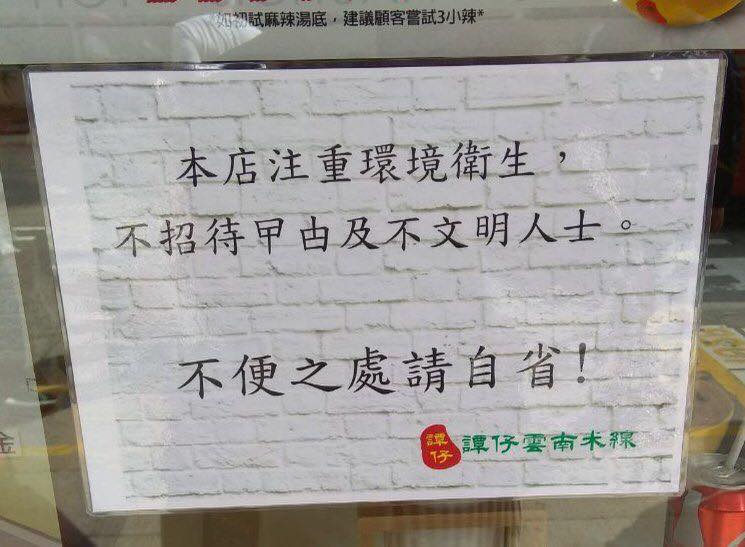 如初試麻辣湯底，建議顧客嘗試3小辣*
本店注重環境衛生，
不招待曱甴及不文明人士。
不便之處請自省!
譚仔
譚仔雲南米線
金